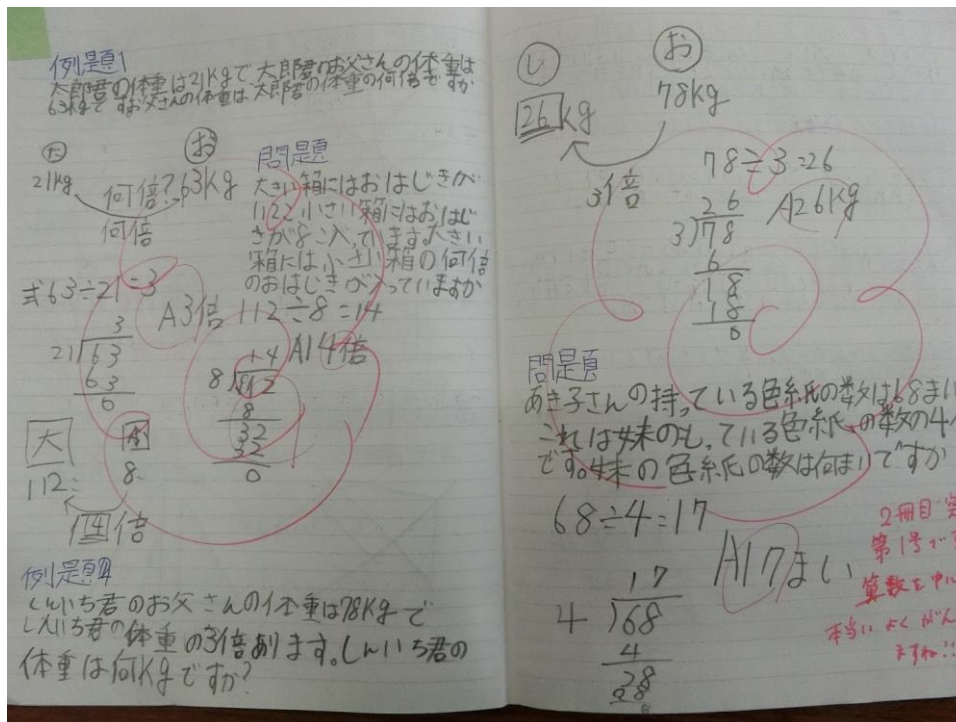 例題1
太郎君の体重は21Kgで太郎君のお父さんの体重は
63Kgですお父さんの体重は太郎君の体重の何倍ですか
た
お
21Kg
何倍?
63Kg
何倍
式63÷21=3
A3倍
3
21)63
63
0
問題
大きい箱にはおはじきが
112こ小さい箱にはおはじ
きが8こ入っています。大きい
箱には小さい箱の何倍
のおはじきが入っていますか
112÷8=14
A14倍
14
8)112
8
32
32
0
大
小
112こ
8こ
14倍
例題2
しんいち君のお父さんの体重は78Kgで
しんいち君の体重の3倍あります。しんいち君の
体重は何Kgですか?
し
お
26Kg
78Kg
3倍
78÷3=26
A26Kg
26
3)78
6
18
18
0
問題
あき子さんの持っている色紙の数は68まい
これは妹のもっている色紙の数の4
です。妹の色紙の数は何まいですか
68÷4=17
A17まい
17
4)68
4
28
28
0
2冊目
第1号で
算数を中
本当によくがん
ますね!!